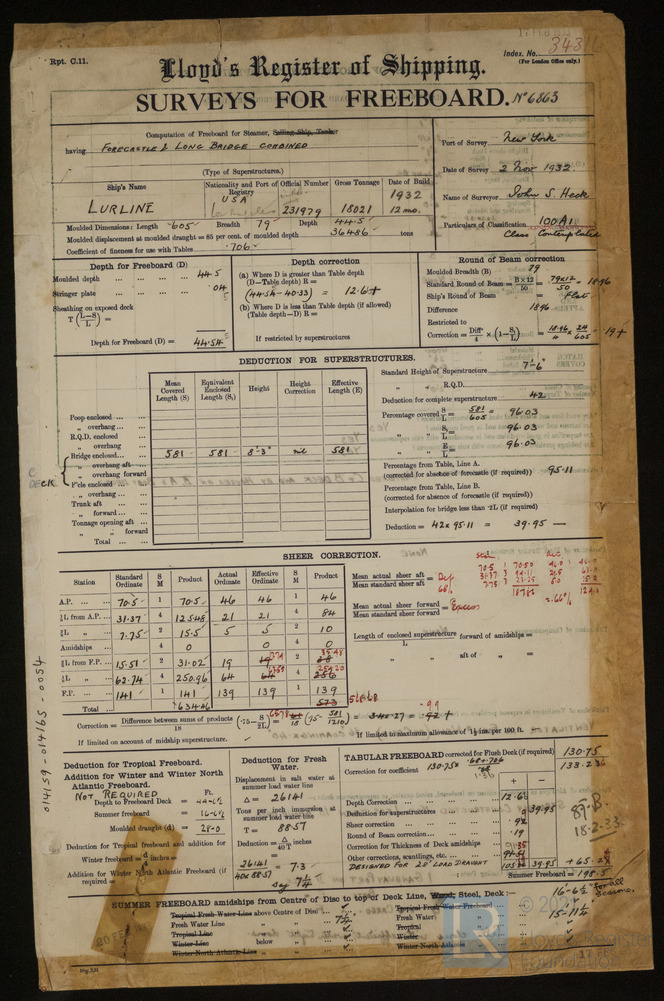 Rpt. C.11.
Index. No. 3431
(For London Office only.)
Lloyd's Register of Shipping.
SURVEYS FOR FREEBOARD. No 6863
Computation of Freeboard for Steamer, Sailing Ship, Tanker
having FORECASTLE & LONG BRIDGE COMBINED
(Type of Superstructures.)
Port of Survey New York
Date of Survey 2 Nov 1932
Name of Surveyor John S. Heck
Particulars of Classification 100A1
Class Contemplated
Ship's Name
Nationality and Port of Registry
Official Number
Gross Tonnage
Date of Build
LURLINE
USA
231979
18021
1932
12 mo.
Moulded Dimensions: Length 605 Breadth 79 Depth 44.5
Moulded displacement at moulded draught = 85 per cent. of moulded depth 36486 tons
Coefficient of fineness for use with Tables .706
Depth for Freeboard (D)
Moulded depth ... 44.5
Stringer plate ... .04
Sheathing on exposed deck
T (L-S/L) =
Depth for Freeboard (D) = 44.54
Depth correction
(a) Where D is greater than Table depth
(D-Table depth) R =
(44.54-40.33) = 12.6+
(b) Where D is less than Table depth (if allowed)
(Table depth-D) R =
If restricted by superstructures
Round of Beam correction
Moulded Breadth (B) 79
Standard Round of Beam = B×12/50 = 79×12/50 = 18.96
Ship's Round of Beam = Flat
Difference 18.96
Restricted to
Correction = Diff/4 × (1-S₁/L) = 18.96/4 × 24/605 = .19+
DEDUCTION FOR SUPERSTRUCTURES.
Mean Covered Length (S)
Equivalent Enclosed Length (S₁)
Height
Height Correction
Effective Length (E)
Poop enclosed ...
" overhang ...
R.Q.D. enclosed
" overhang
Bridge enclosed... 581 581 8'-3" nil 581
" overhang aft
" overhang forward
DECK
F'cle enclosed ...
" overhang ...
Trunk aft ...
" forward ...
Tonnage opening aft ...
" " forward
Total ...
Standard Height of Superstructure 7'-6"
" " R.Q.D.
Deduction for complete superstructure 42
Percentage covered S/L = 581/605 = 96.03
" " S₁/L = 96.03
" " E/L = 96.03
Percentage from Table, Line A.
(corrected for absence of forecastle (if required)) 95.11
Percentage from Table, Line B.
(corrected for absence of forecastle (if required))
Interpolation for bridge less than .2L (if required)
Deduction = 42 × 95.11 = 39.95 —
SHEER CORRECTION.
Station
Standard Ordinate
S M
Product
Actual Ordinate
Effective Ordinate
S M
Product
A.P. ... 70.5 1 70.5 46 46 1 46
⅙L from A.P. ... 31.37 4 125.48 21 21 4 84
⅓L " 7.75 2 15.5 5 5 2 10
Amidships 4 0 0 4 0
⅓L from F.P. ... 15.51 2 31.02 19 2
⅙L " 62.74 4 250.96 64 4 256
F.P. ... 141 1 141 139 139 1 139
Total ... 634.46 573 568.68
Mean actual sheer aft / Mean standard sheer aft = Def.
68%
Mean actual sheer forward / Mean standard sheer forward = Excess
Length of enclosed superstructure forward of amidships = / L
" " aft of " =
Correction = Difference between sums of products / 18 (.75 - S/2L) = (.75 - 581/1210) = 3.4 × .27 = .92 +
.99
If limited on account of midship superstructure.
If limited to maximum allowance of 1½ ins. per 100 ft.
014159-014165-0054
Deduction for Tropical Freeboard.
Addition for Winter and Winter North Atlantic Freeboard.
NOT REQUIRED
Ft.
Depth to Freeboard Deck = 44-6½
Summer freeboard = 16-6½
Moulded draught (d) = 28-0
Deduction for Tropical freeboard and addition for
Winter freeboard = d/4 inches =
Addition for Winter North Atlantic Freeboard (if
required =
Deduction for Fresh Water.
Displacement in salt water at summer load water line
Δ = 26141
Tons per inch immersion at summer load water line
T = 88.57
Deduction = Δ/40T inches
= 26141/40×88.57 = 7.3
say 7¼
TABULAR FREEBOARD corrected for Flush Deck (if required) 130.75
Correction for coefficient 130.75 × .68+.706/1.36
133.2
+ -
Depth Correction ... 12.6
Deduction for superstructures ... 39.95
Sheer correction ... .92
Round of Beam correction... .19
Correction for Thickness of Deck amidships
Other corrections, scantling, etc. ...
DESIGNED FOR 28' LOAD DRAUGHT
39.95 + 65.2
Summer Freeboard = 198.5
89.B.
18.2.33
SUMMER FREEBOARD amidships from Centre of Disc to top of Deck Line, Wood, Steel, Deck:— 16-6½ for all seasons.
Tropical Fresh Water Line above Centre of Disc ...
Fresh Water Line " 7¼
Tropical Line "
Winter Line below "
Winter North Atlantic Line "
Tropical Fresh Water Freeboard
Fresh Water " 15-11¼
Tropical "
Winter "
Winter North Atlantic "